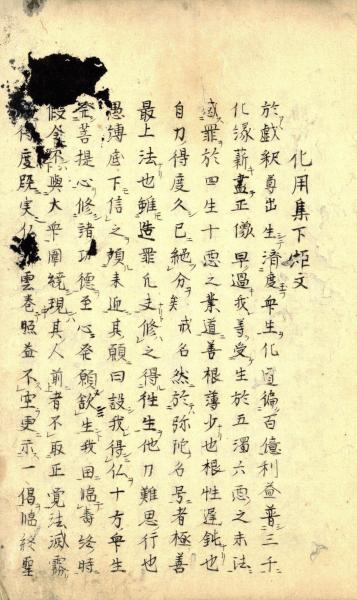 化用集下 文
於戯釈尊出生済度衆生化道遍百億利益普三千
化縁薪盡正像早過我等受生於五濁六悪之末法
感罪於四生十悪之業道善根薄少也根性遅鈍也
自力得度久已絶分矣 戒名然於弥陀名号者極善
最上法也雖造罪凡夫修之得徃生他力難思行也
愚縛底下信之頼来迎其願曰設我得仏十方衆生
發菩提心修諸功徳至心発願欲生我国臨寿終時
假令不與大衆囲繞現其人前者不取正覚法滅
得度既 雲巻照益不空更示一偈臨終聖